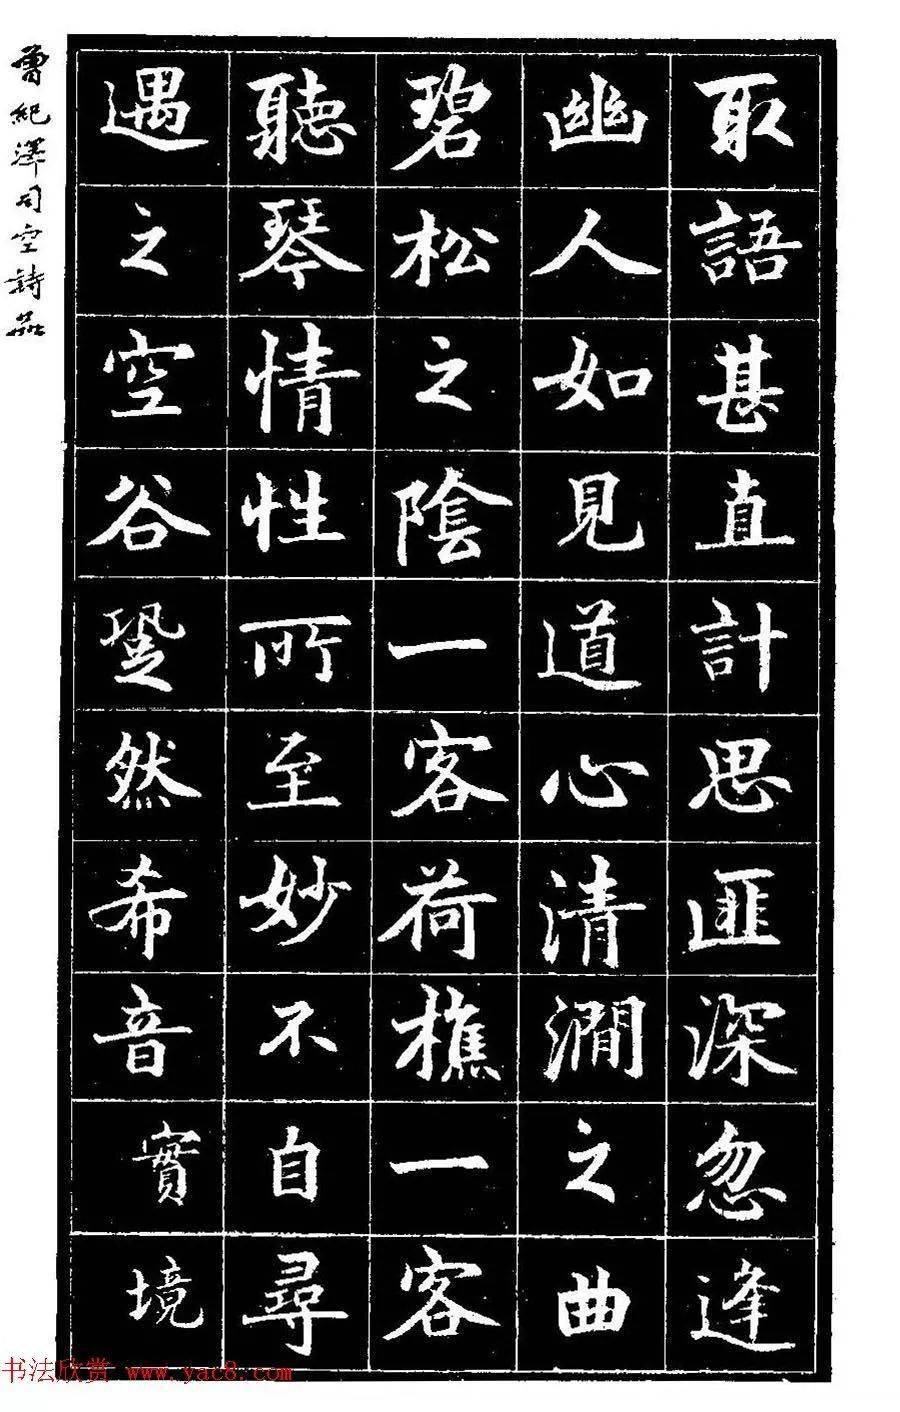 取語甚直計思匪深忽逢
幽人如見道心清澗之曲
碧松之陰一客荷樵一客
聽琴情性所至妙不自尋
遇之空谷跫然希音實境
曾紀澤司空詩品
书法欣赏 www.yac8.com